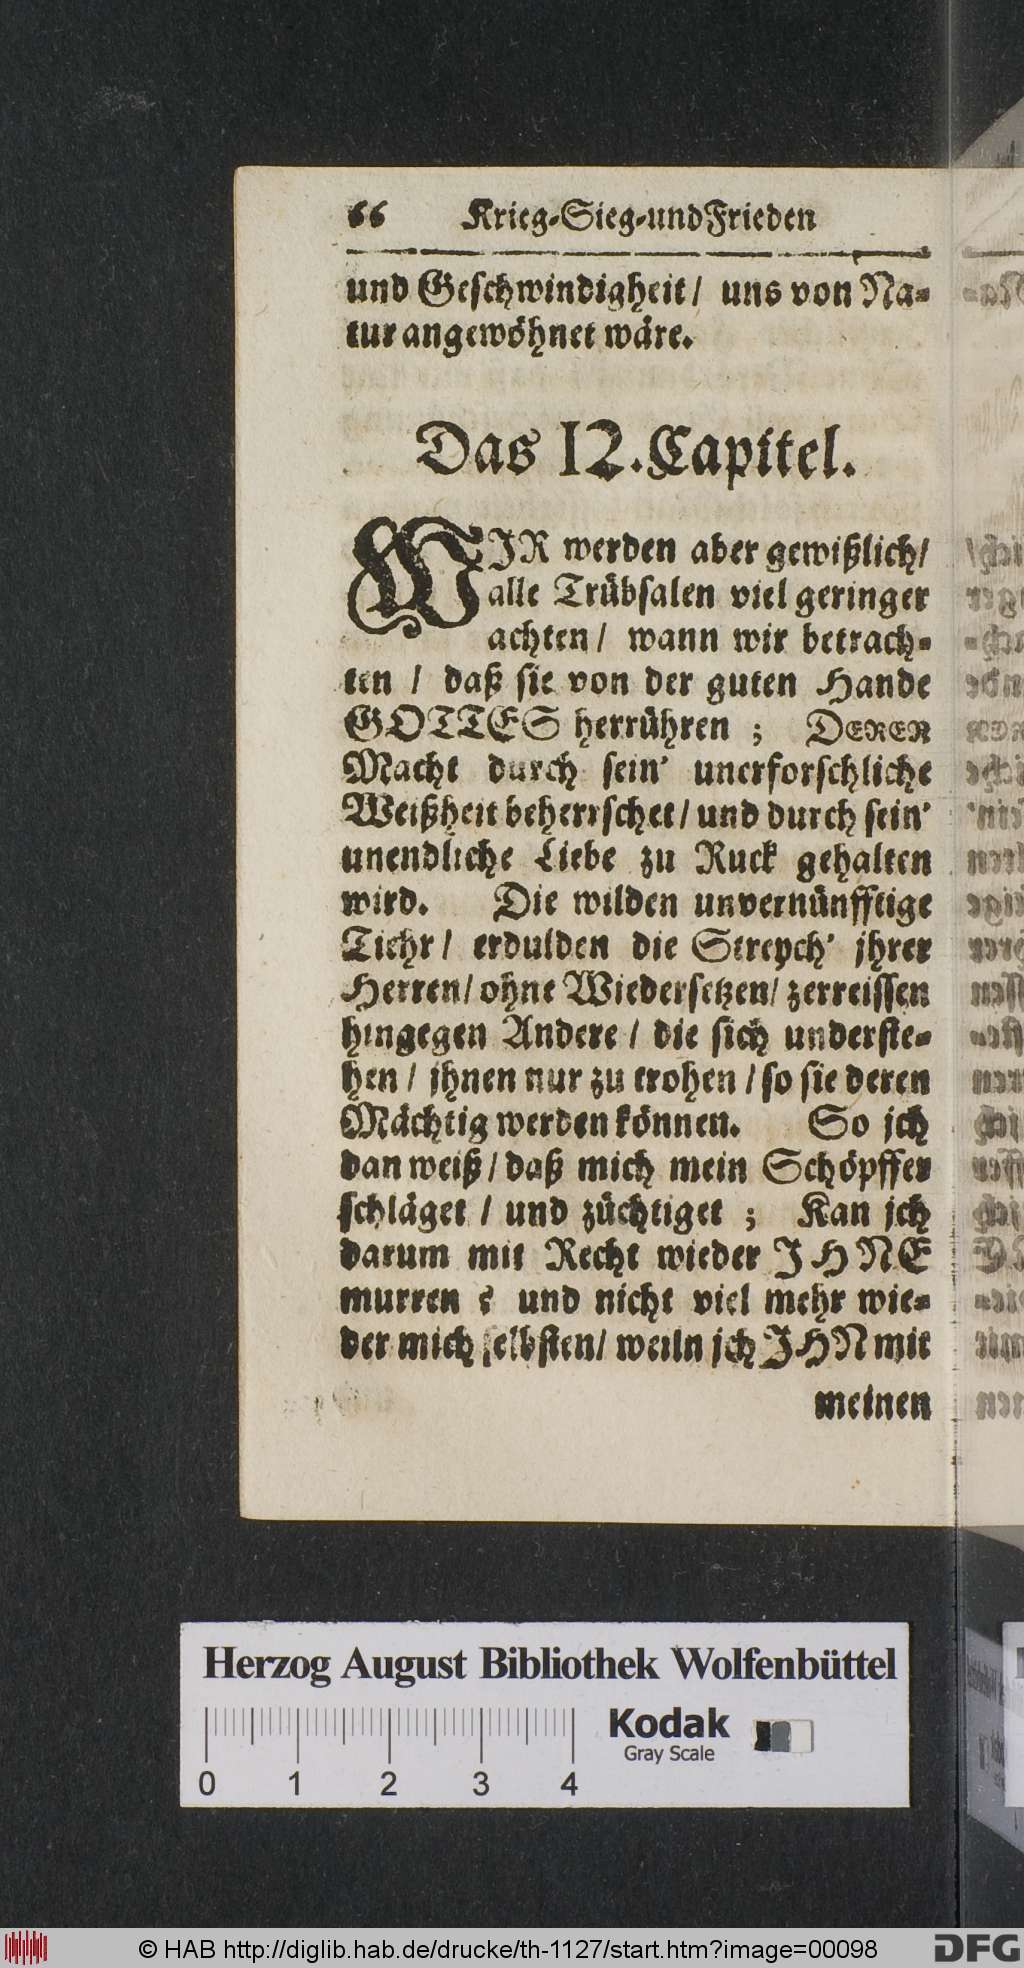 66 Krieg-Sieg-und Frieden
und Geschwindigheit/ uns von Na-
tur angewöhnet wäre.
Das 12. Capitel.
WIR werden aber gewißlich/
alle Trübsalen viel geringer
achten/ wann wir betrach-
ten / daß sie von der guten Hande
GOTTES herrühren ; DERER
Macht durch sein' unerforschliche
Weißheit beherrschet/ und durch sein'
unendliche Liebe zu Ruck gehalten
wird. Die wilden unvernünfftige
Tiehr/ erdulden die Streych' jhrer
Herren/ ohne Wiedersetzen/ zerreissen
hingegen Andere / die sich underste-
hen / jhnen nur zu trohen / so sie deren
Mächtig werden können. So jch
dan weiß / daß mich mein Schöpffer
schläget / und züchtiget ; Kan jch
darum mit Recht wieder JHNE
murren ? und nicht viel mehr wie-
der mich selbsten/ weiln jch JHN mit
meinen
Herzog August Bibliothek Wolfenbüttel
0 1 2 3 4
Kodak
Gray Scale
© HAB http://diglib.hab.de/drucke/th-1127/start.htm?image=00098
DFG